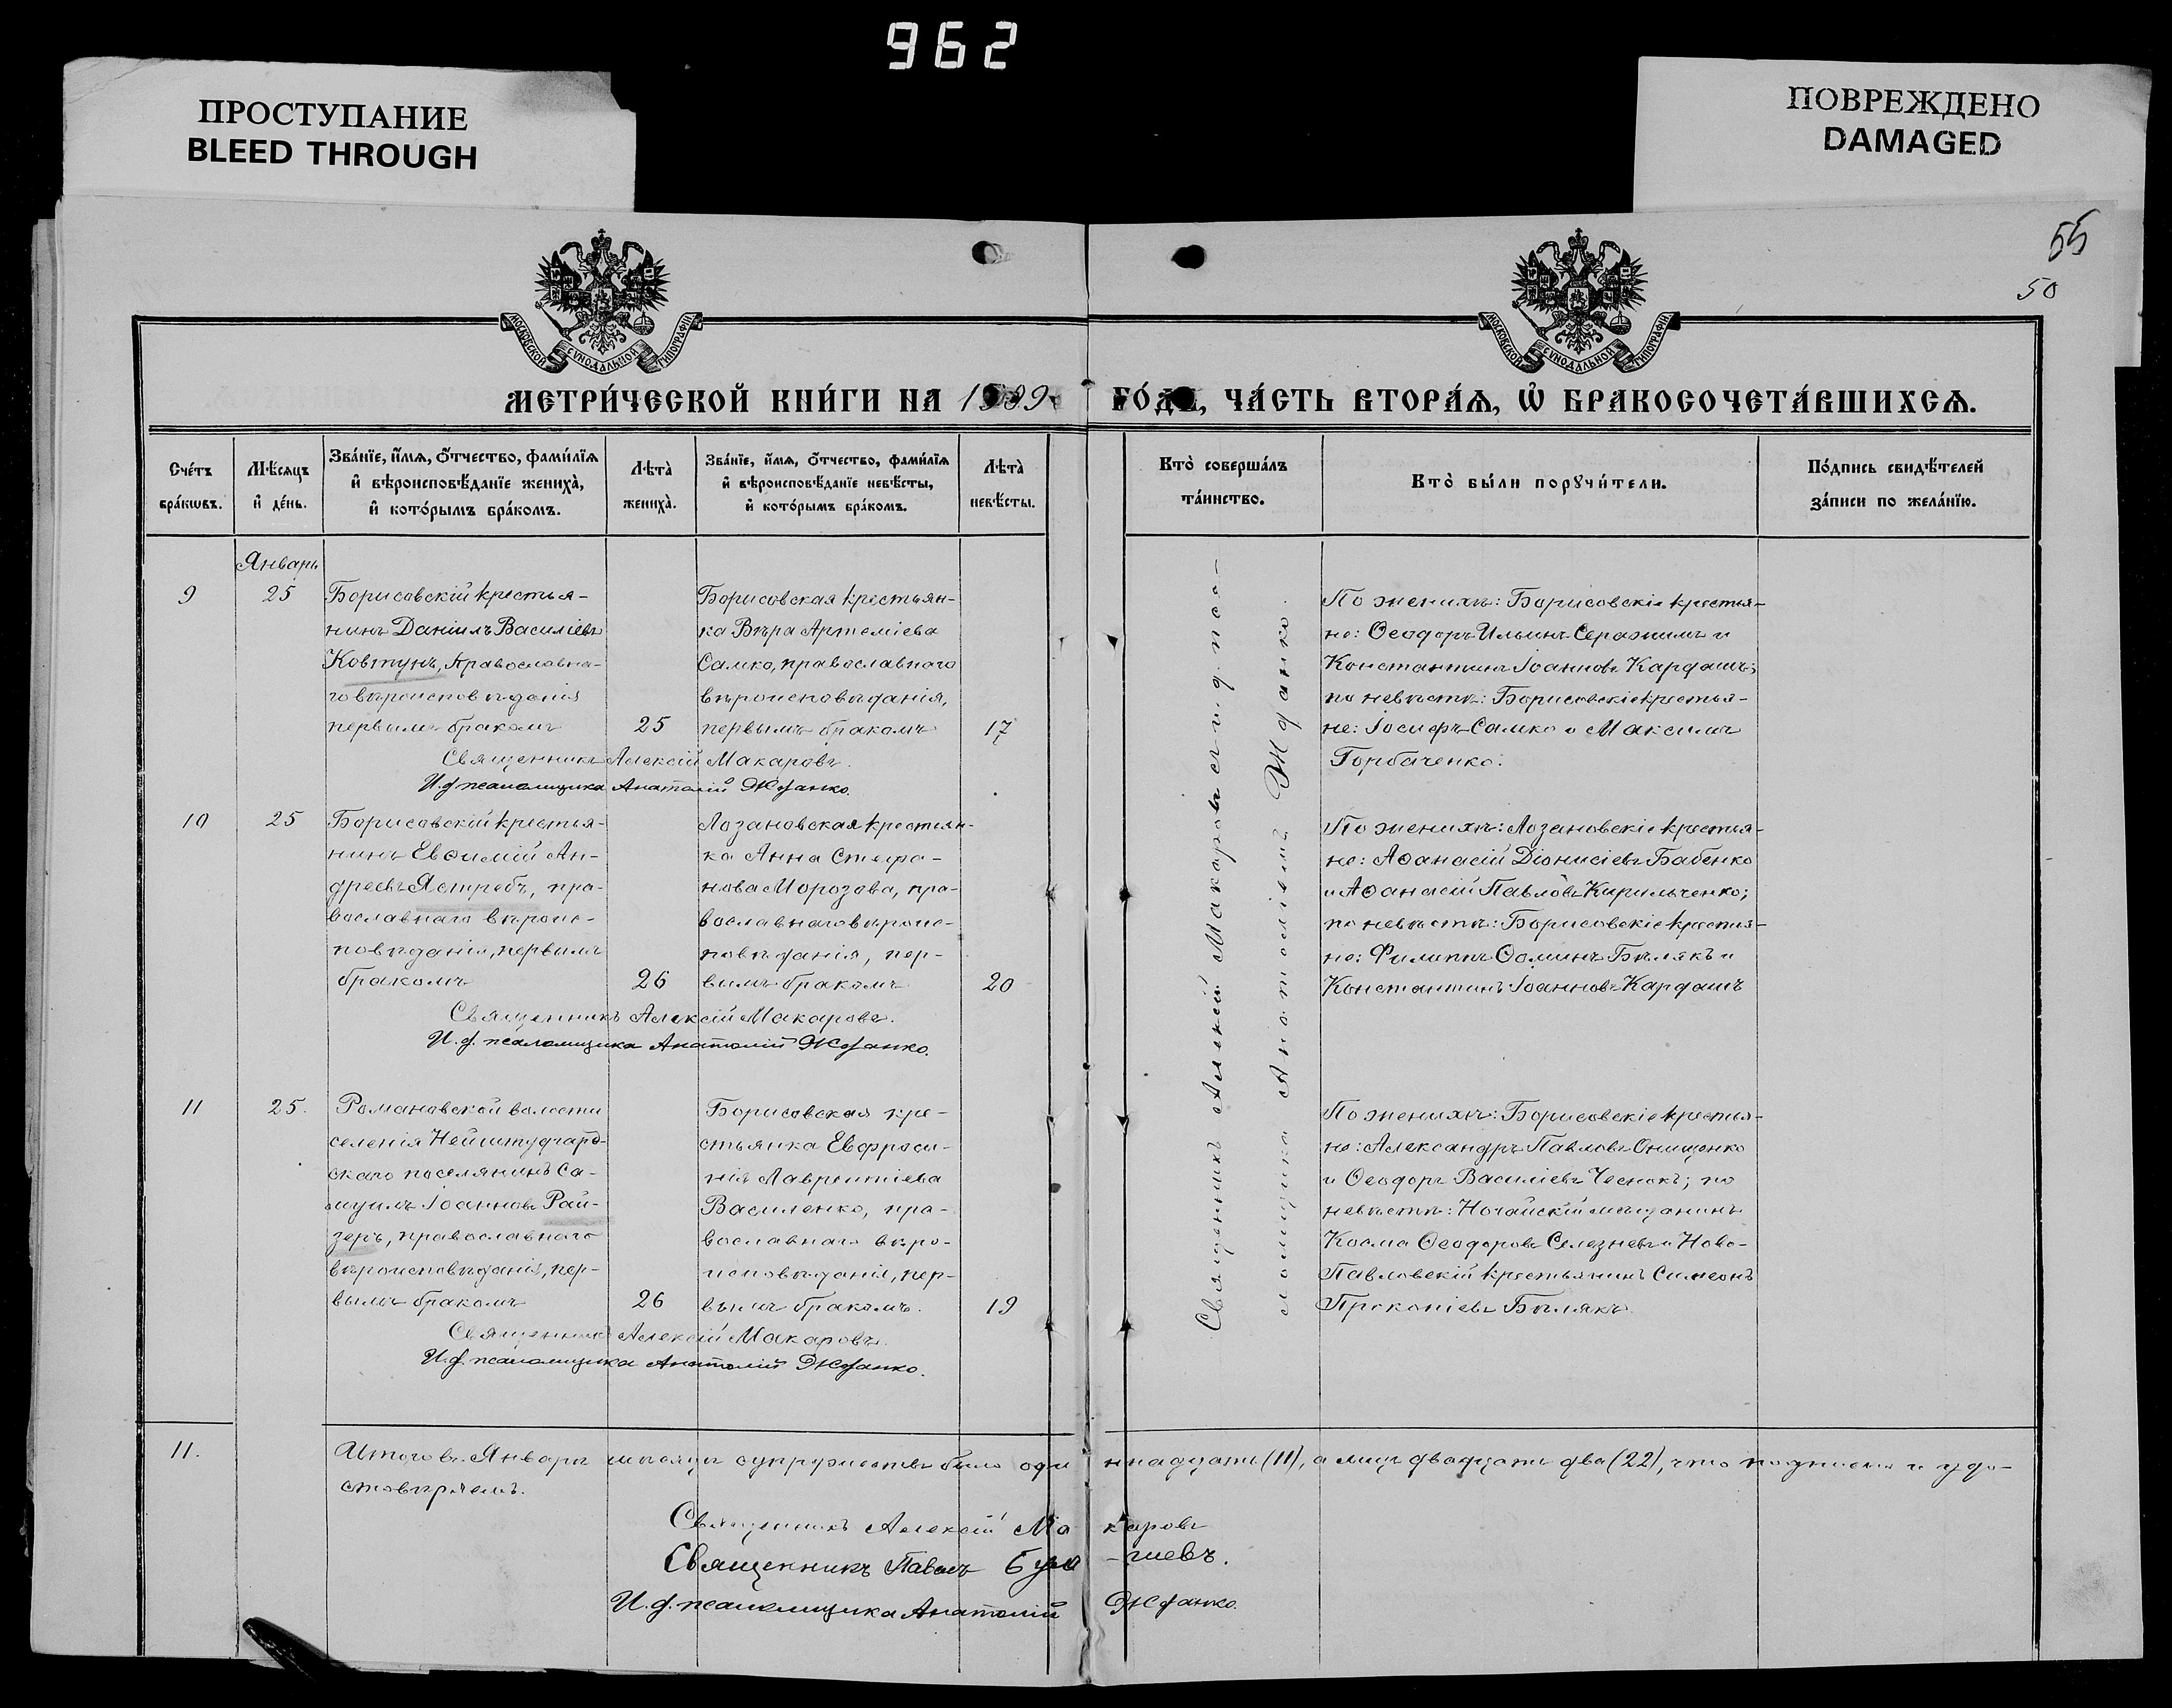 962
ПРОСТУПАНИЕ
BLEED THROUGH
ПОВРЕЖДЕНО
DAMAGED
55
50
МОСКОВСКОЙ СѴНОДАЛЬНОЙ ТИПОГРАФІИ
МОСКОВСКОЙ СѴНОДАЛЬНОЙ ТИПОГРАФІИ
МЕТРИ́ЧЕСКОЙ КНИ́ГИ НА 1899 ГО́ДЪ, ЧА́СТЬ ВТОРА́Ѧ, Ѽ БРАКОСОЧЕТА́ВШИХСѦ.
Сче́тъ
бра́кωвъ.
Мѣ́сяцъ
и҆ де́нь.
Зва́нїе, и҆́мѧ, ѻ҆́тчество, фами́лїѧ
и҆ вѣроисповѣ́данїе жениха̀,
и҆ кото́рымъ бра́комъ.
Лѣта̀
жениха̀.
Зва́нїе, и҆́мѧ, ѻ҆́тчество, фами́лїѧ
и҆ вѣроисповѣ́данїе невѣ́сты,
и҆ кото́рымъ бра́комъ.
Лѣта̀
невѣ́сты.
Кто̀ соверша́лъ
та́инство.
Кто̀ бы́ли порꙋчи́тели.
По́дпись свидѣ́телей
за́писи по жела́нїю.
Январь
9
25
Борисовскій крестья-
нинъ Даніилъ Василіевъ
Ковтунъ, православна-
го вѣроисповѣданія
первымъ бракомъ
25
Борисовская крестьян-
ка Вѣра Артеміева
Самко, православнаго
вѣроисповѣданія,
первымъ бракомъ
17
Священникъ Алексій Макаровъ.
И.д. псаломщика Анатолій Жданко.
По женихѣ: Борисовскіе крестья-
не: Ѳеодоръ Ильинъ Серажимъ и
Константинъ Іоанновъ Кардашъ;
по невѣстѣ: Борисовскіе крестья-
не: Іосифъ Самко и Максимъ
Горбаченко.
10
25
Борисовскій крестья-
нинъ Евѳимій Ан-
дреевъ Ястребъ, пра-
вославнаго вѣроис-
повѣданія, первымъ
бракомъ
26
Лозановская крестьян-
ка Анна Стефа-
нова Морозова, пра-
вославнаго вѣроис-
повѣданія, пер-
вымъ бракомъ
20
Священникъ Алексій Макаровъ.
И.д. псаломщика Анатолій Жданко.
По женихѣ: Лозановскіе крестья-
не: Аѳанасій Діонисіевъ Бабенко
и Аѳанасій Павловъ Кирильченко;
по невѣстѣ: Борисовскіе крестья-
не: Филиппъ Ѳоминъ Бѣлякъ и
Константинъ Іоанновъ Кардашъ
11
25.
Романовской волости
селенія Нейштудгард-
скаго поселянинъ Са-
муилъ Іоанновъ Рай-
зеръ, православнаго
вѣроисповѣданія, пер-
вымъ бракомъ
26
Борисовская кре-
стьянка Евфроси-
нія Лаврентіева
Василенко, пра-
вославнаго вѣро-
исповѣданія, пер-
вымъ бракомъ.
19
Священникъ Алексій Макаровъ.
И.д. псаломщика Анатолій Жданко.
По женихѣ: Борисовскіе крестья-
не: Александръ Павловъ Онищенко
и Ѳеодоръ Василіевъ Чеснокъ; по
невѣстѣ: Ногайскій мѣщанинъ
Косма Ѳеодоровъ Селезневъ и Ново-
Павловскій крестьянинъ Симеонъ
Прокопіевъ Бѣлякъ.
Священникъ Алексій Макаровъ и и.д. пса-
ломщика Анатолій Жданко.
11.
Итого въ Январѣ мѣсяцѣ супружествъ было одиннадцать (11), а лицъ двадцать два (22), что подписью и удо-
стовѣряемъ.
Священникъ Алексій Макаровъ
Священникъ Павелъ
И.д. псаломщика Анатолій Жданко.